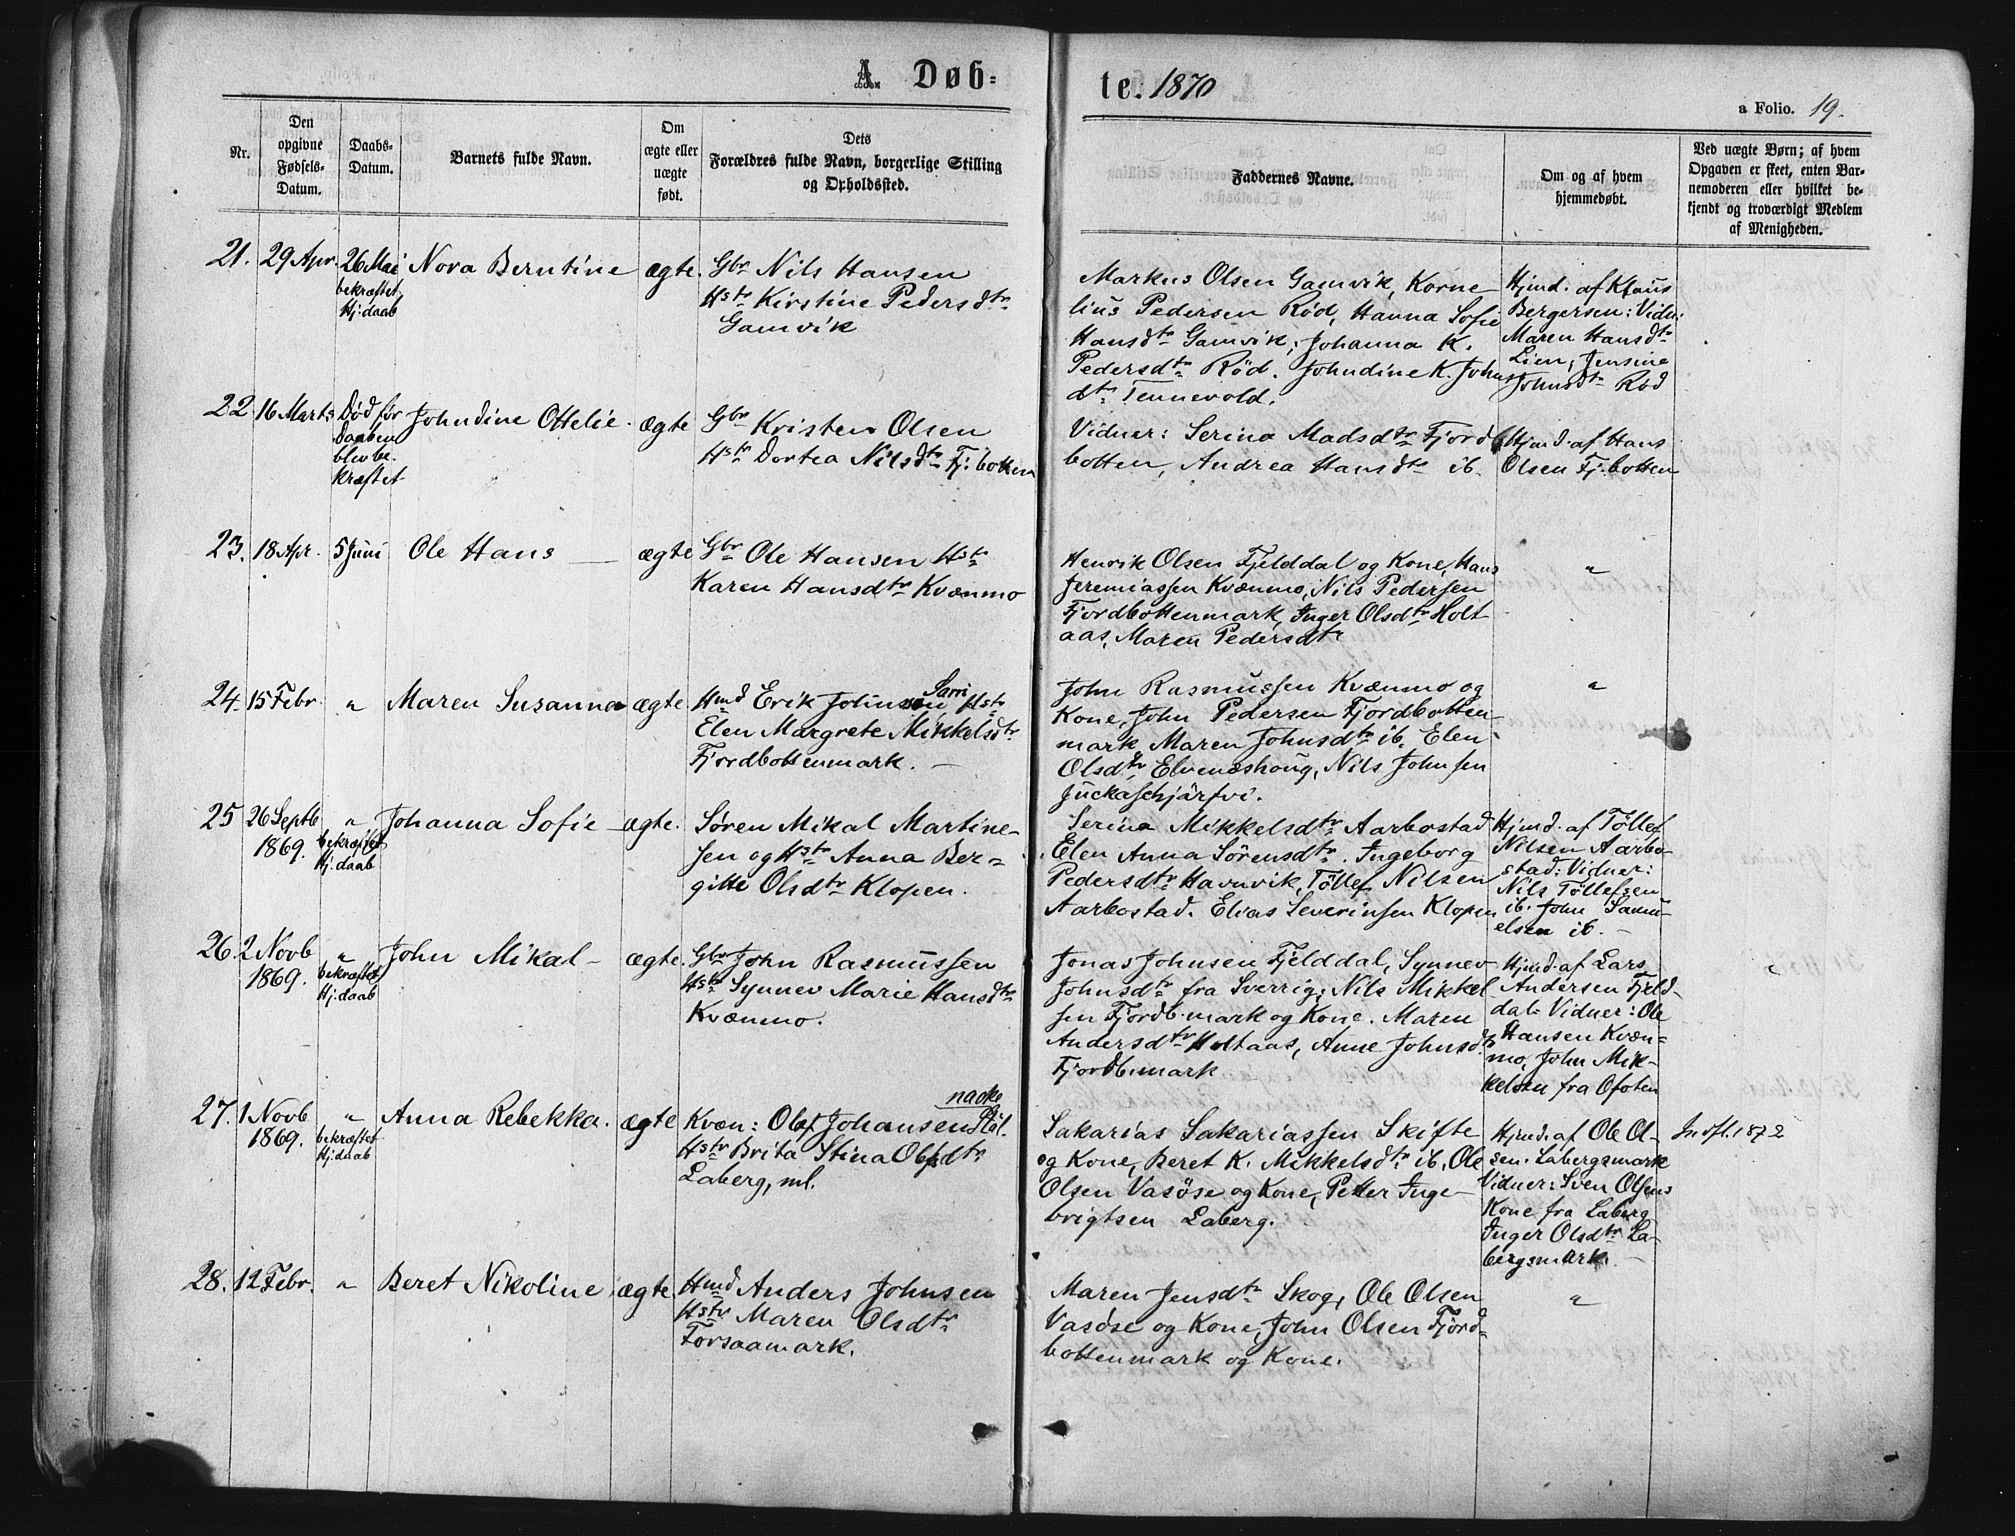 A Døb=
te. 1870
a Folio. 19.
Nr.
Den
opgivne
Fødsels-
Datum.
Daabs-
Datum.
Barnets fulde Navn.
Om
ægte eller
uægte
født.
Dets
Forældres fulde Navn, borgerlige Stilling
og Opholdssted.
Faddernes Navne.
Om og af hvem
hjemmedøbt.
Ved uægte Børn; af hvem
Opgaven er skeet, enten Bar-
nemoderen eller hvilket be-
kjendt og troværdigt Medlem
af Menigheden.
21.
29 Apr.
26 Mai
bekræftet
Hj:daab
Nora Berntine
ægte.
Gbr Nils Hansen
Hstr Kirstine Pedersdtr
Gamvik
Markus Olsen Gamvik, Korne-
lius Pedersen Rød, Hanna Sofie
Hansdtr Gamvik, Johanna K.
Pedersdtr Rød. Johndine K. Johns
dtr Tennevold.
Hjmd. af Klaus
Bergersen: Vidn:
Maren Hansdtr
Lien, Jensine
Johnsdtr Rød
22
16 Marts
Død før
Daaben
blev be-
kræftet
Johndine Ottelie
ægte
Gbr Kristen Olsen
Hstr Dortea Nilsdtr Fj:botten
Vidner: Serina Madsdtr Fjord
botten, Andrea Hansdtr ib.
Hjmd. af Hans
Olsen Fj.botten
23.
18 Apr.
5 Juni
Ole Hans —
ægte
Gbr Ole Hansen Hstr
Karen Hansdtr Kvænmo
Henrik Olsen Fjelddal og Kone, Hans
Jeremiassen Kvænmo, Nils Pedersen
Fjordbottenmark, Inger Olsdtr Holt
aas, Maren Pedersdtr
"
24.
15 Febr
"
Maren Susanna
ægte.
Sarri
Hmd Erik Johnsen, Hstr
Elen Margrete Mikkelsdtr
Fjordbottenmark. —
John Rasmussen Kvænmo og
Kone, John Pedersen Fjordbotten-
mark, Maren Johnsdtr ib. Elen
Olsdtr Elvenæshoug, Nils Johnsen
Juckaschjärfvi.
"
25
26 Septb
1869.
"
bekræftet
Hj:daab
Johanna Sofie —
ægte.
Søren Mikal Martine-
sen og Hstr Anna Ber=
gitte Olsdtr Klopen.
Serina Mikkelsdtr Aarbostad
Elen Anna Sørensdtr. Ingeborg
Pedersdtr Havnvik, Töllef Nilsen
Aarbostad. Elias Severinsen Klopen
Hjmd. af Töllef
Nilsen Aarbo-
stad: Vidner:
Nils Töllefsen
ib. John Samu-
elsen ib. —
26.
2 Novb
1869.
"
bekræftet
Hj:daab
John Mikal —
ægte.
Gbr John Rasmussen
Hstr Synnev Marie Hansdtr
Kvænmo.
Jonas Johnsen Fjelddal, Synnev
Johnsdtr fra Sverrig, Nils Mikkel-
sen Fjordb.mark og Kone. Maren
Andersdtr Holtaas, Anne Johnsdtr
Fjordb.mark
Hjmd. af Lars
Andersen Fjeld-
dal. Vidner: Ole
Hansen Kvæn=
mo, John Mik-
kelsen fra Ofoten
"
27.
1 Novb
1869.
"
bekræftet
Hj:daab
Anna Rebekka.
ægte
Kvæn: Olof Johansen
Hstr Brita Stina Olofsdtr
Laberg, ml.
Sakarias Sakariassen Skifte
og Kone, Beret K. Mikkelsdtr ib, Ole
Olsen Vasøse og Kone, Petter Inge-
brigtsen Laberg.
Hjmd. af Ole Ol-
sen. Labergsmark
Vidner: Sven Olsens
Kone fra Laberg
Inger Olsdtr La-
bergsmark. —
28.
12 Febr.
"
Beret Nikoline
ægte.
Hmd Anders Johnsen
Hstr Maren Olsdtr
Forsaamark.
Maren Jensdtr Skog, Ole Olsen
Vasøse og Kone, John Olsen Fjord=
bottenmark og Kone.
"